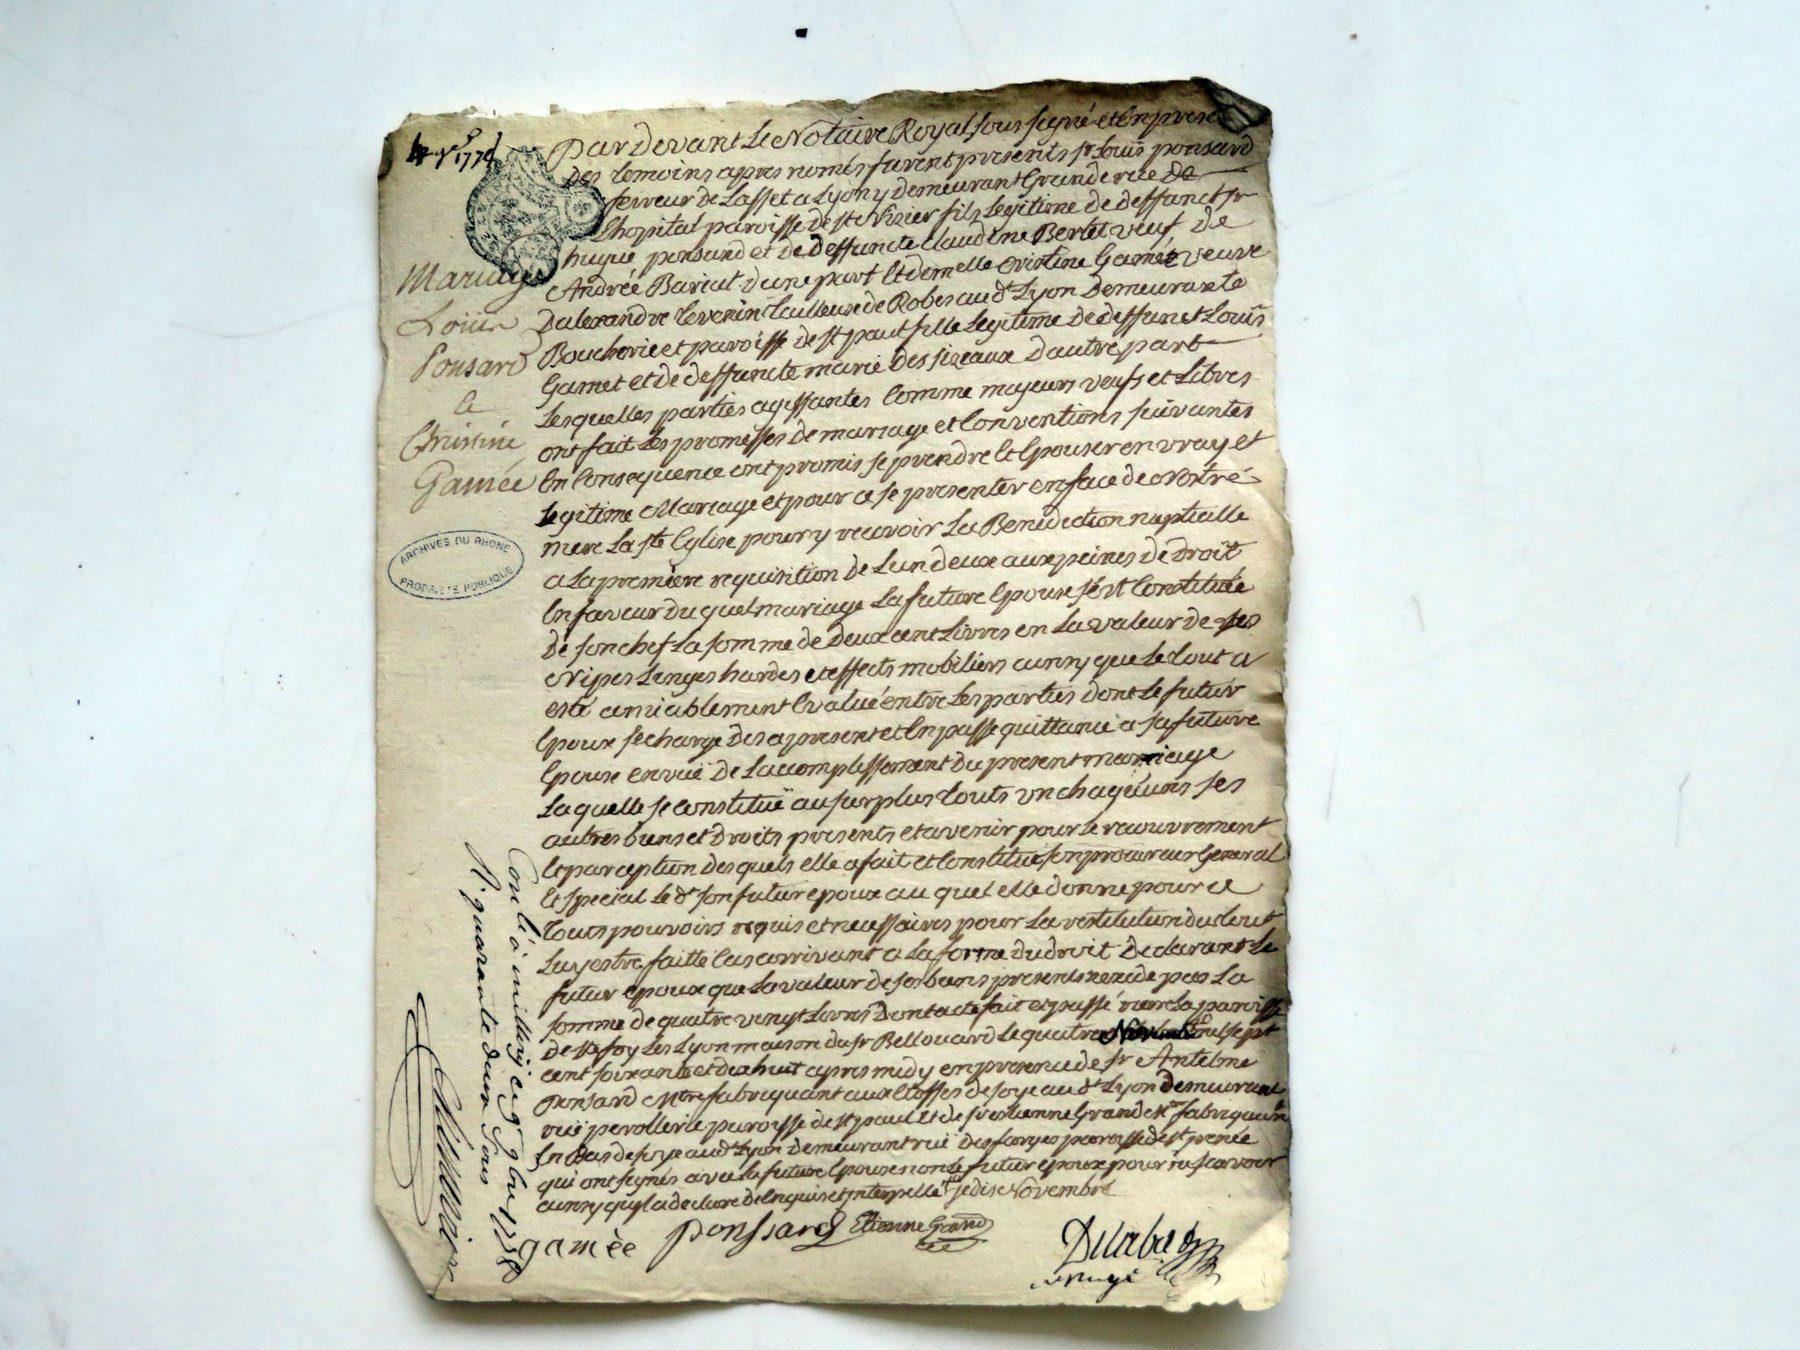 4 9bre 1778
Mariage
Loüis
Ponsard
a
Christine
Gamée
ARCHIVES DU RHONE
PROPRIETE PUBLIQUE
Par Devant Le Notaire Royal sous signé et En presence
Des temoins apres només furent presents sr Louis ponsard
ferreur de Lasset a Lyon y demeurant Grande rue De
Lhopital paroisse de st Nizier fils Legitime de deffunct sr
hugue ponsard et de deffuncte Claudine Berlet veuf de
Andrée Bariat d'une part Et demelle Cristine Gamét veuve
Dalexandre tevenin tailleuse de Robes aud Lyon Demeurante
Boucherie et paroisse de st paul fille Legitime de deffunct Louis
Gamet et de deffuncte marie des sizeaux d'autre part
Lesquelles parties agissantes Comme majeurs veufs et Libres
ont fait Les promesses de mariage et Conventions suivantes
En Consequence ont promis se prendre Et Epouser en vray et
Legitime Mariage et pour ce se presenter en face de Nottre
mere La ste Eglise pour y recevoir La Benediction nuptialle
a La premiere requisition de Lun deux aux peines de Droit
En faveur du quel mariage La future Epouse s'est Constituée
De son chef La somme de deux cent Livres en La valeur de ses
Nipes Linges hardes et effects mobiliers ainsy que Le tout a
esté amiablement Evalué entre Les parties dont Le futur
Epoux se charge des apresent et En passe quittance a sa future
Epouse en vuë de Lacomplissement du present mariage
Laquelle se constituë au surplus touts un chaqu'uns ses
autres biens et Droits presents et avenir pour le recouvrement
Et perception des quels elle a fait et Constitué son procureur General
Et special Le d. son futur epoux au quel elle donne pour ce
touts pouvoirs requis et necessaires pour La restitution du tout
Luy estre faitte Cas arrivant a La forme du droit Declarant Le
futur epoux que La valeur de ses biens presents n'exede pas La
somme de quatre vingt Livres Dont acte fait et passé La paroisse
De ste foy Les Lyon maison du sr Bellouard Le quatre Novembre mil sept
cent soixante et dix huit apres midy en presence de sr Antelme
ponsard Mtre fabriquant aux Etoffes de soye aud. Lyon demeurant
ruë perollerie paroisse de st paul et de sr estienne Grand Mtre fabriquant
En Bas de soye aud. Lyon Demeurant ruë des farges paroisse de st irenée
qui ont signés avec La future Epouse non Le futur epoux pour ne scavoir
ainsy quyl a declaré de Enquis et interpellé je dis Novembre
gamèe
ponssard
Etienne Grand
Con.lé à millery ce 9bre 1778
R. quarante deux sous